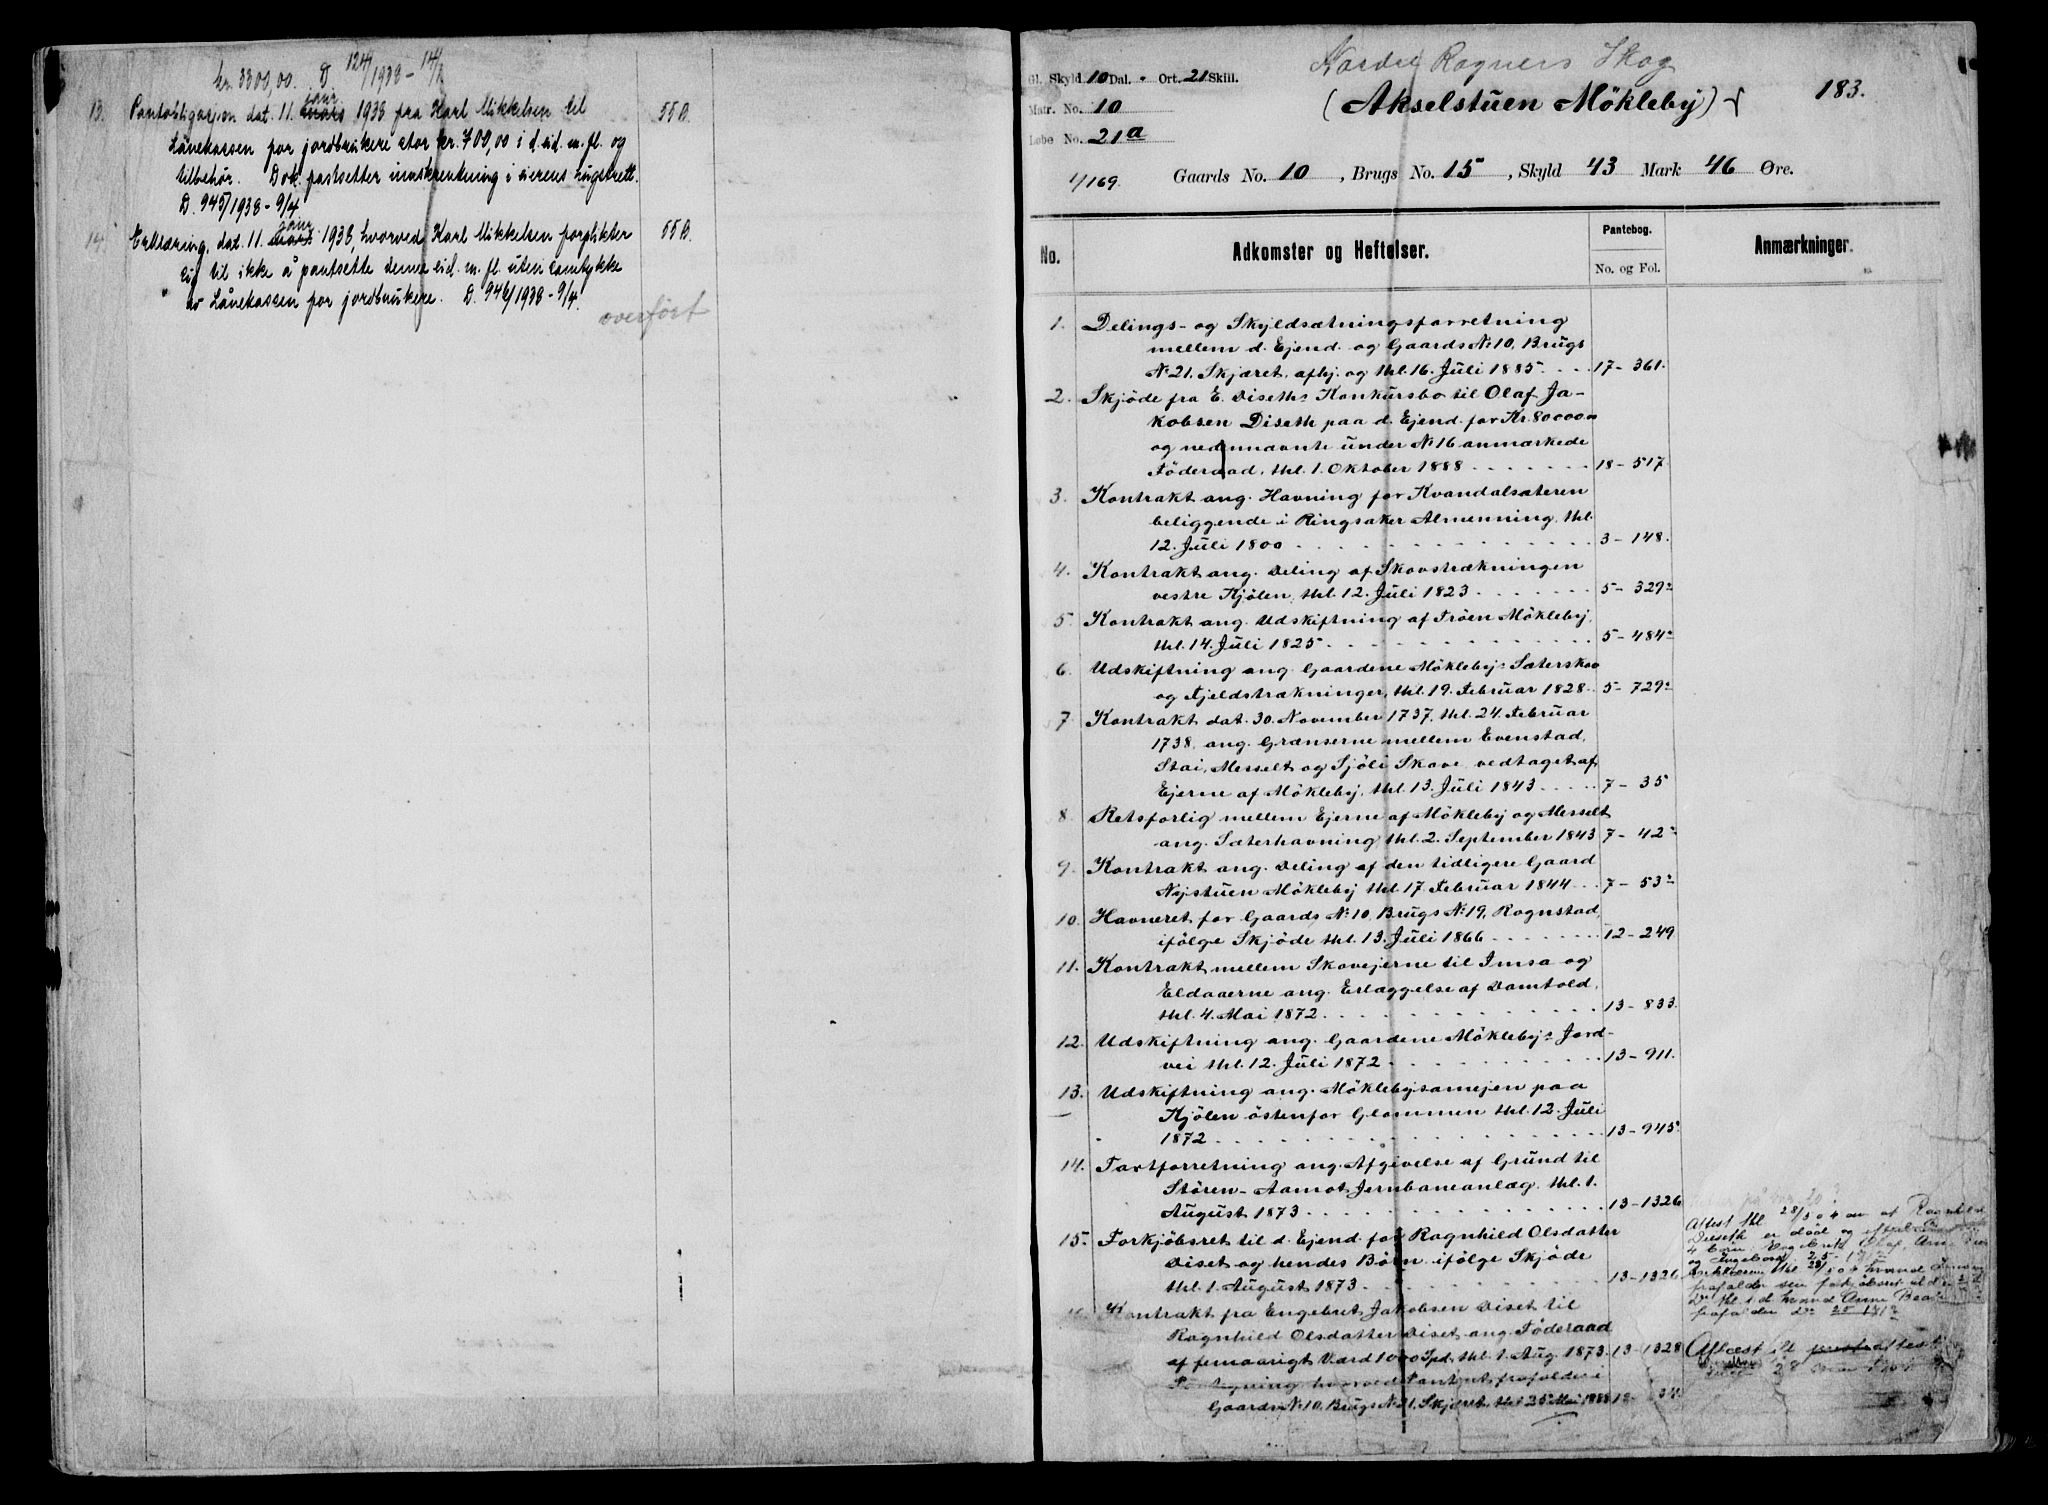 kr. 3300,00. D. 124/1938 - 14/1
13. Pantobligasjon dat. 11. mars janr 1938 fra Karl Mikkelsen til 55B.
Lånekassen for jordbrukere stor kr. 700,00 i d. eid. m. fl. og
tilbehør. Dok. fastsetter innskrenkning i eierens hugstrett.
D. 945/1938 - 9/4
14. Erklæring, dat. 11. mars janr 1938, hvorved Karl Mikkelsen forplikter 55B.
sig til ikke å pantsette denne eid. m. fl. uten samtykke
av Lånekassen for jordbrukere. D. 946/1938 - 9/4.
overført
Nordre Ragners Skog
Gl. Skyld 10 Dal. - Ort. 21 Skill.
(Akselstuen Mökleby) 183.
Matr. No. 10
Løbe No. 21a
1/169. Gaards No. 10, Brugs No. 15, Skyld 43 Mark 46 Øre.
No. Adkomster og Heftelser. Pantebog. No. og Fol. Anmærkninger.
1. Delings- og Skyldsætningsforretning
mellem d. Ejend. og Gaards No 10, Brugs
No 21. Skjæret, afhj. og thl. 16. Juli 1885 17 - 361.
2. Skjöde fra E. Diseths Konkursbo til Olaf Ja-
kobsen Diseth paa d. Ejend. for Kr. 80000 =
og nedennævnte under No 16 anmærkede
Föderaad, thl. 1. Oktober 1888 18 - 517.
3. Kontrakt ang. Havning for Kvandalsæteren
beliggende i Ringsaker Almenning, thl.
12. Juli 1800 3 - 148.
4. Kontrakt ang. Deling af Skovstrækningen
vestre Kjölen, thl. 12. Juli 1823 5 - 329b
5. Kontrakt ang. Udskiftning af Tröen Mökleby,
thl. 14. Juli 1825 5 - 484b
6. Udskiftning ang. Gaardene Möklebys Sæterskov
og Fjeldstrækninger, thl. 19. Februar 1828 5 - 729b
7. Kontrakt dat. 30. November 1737, thl. 24. Februar
1738, ang. Grænserne mellem Evenstad,
Stai, Messelt og Sjöli Skove, vedtaget af
Ejerne af Mökleby, thl. 13. Juli 1843 7 - 35
8. Retsforlig mellem Ejerne af Mökleby og Messelt
ang. Sæterhavning thl. 2. September 1843 7 - 42b
9. Kontrakt ang. Deling af den tidligere Gaard
Nystuen Mökleby thl. 17. Februar 1844 7 - 53b
10. Havneret for Gaards No 10, Brugs No 19, Rognstad,
ifölge Skjöde thl. 13. Juli 1866 12 - 249
11. Kontrakt mellem Skovejerne til Imsa og
Eldaaerne ang. Erlæggelse af Damtold,
thl. 4. Mai 1872 13 - 833.
12. Udskiftning ang. Gaardene Möklebys Jord-
vei thl. 12. Juli 1872 13 - 911.
13. Udskiftning ang. Möklebysamejen paa
Kjölen östenfor Glommen thl. 12. Juli
1872 13 - 945.
14. Taxtforretning ang. Afgivelse af Grund til
Stören - Aamot Jernbaneanlæg, thl. 1.
August 1873 13 - 1326
15. Forkjöbsret til d. Ejend. for Ragnhild Olsdatter
Diset og hendes Börn ifölge Skjöde
thl. 1. August 1873 13 - 1326
16. Kontrakt fra Engebret Jakobsen Diset til
Ragnhild Olsdatter Diset ang. Föderaad
af femaarigt Værd 1000 Spd. thl. 1. Aug. 1873. 13 - 1328
Paategning hvorved Pantet frafaldes i
Gaards No 10, Brugs No 21, Skjæret, thl 25 Mai 1888
Attest thl 28/5 04 om at Ragnhild
Diseth er död og efterl.
4 börn: Engebret, Olaf, Anne
og Ingeborg 25-
Erklæring thl 28/5 04 hvorved
frafalder sin forkjöbsret
Do thl s.d. hvorved Anne
frafalder do 25
Aflæst
28